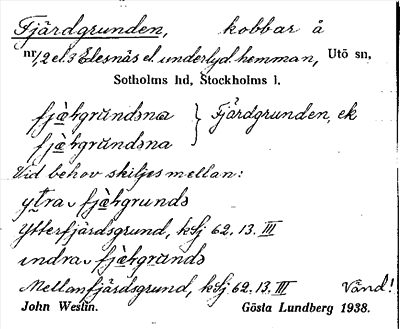 Fjärdgrunden, kobbar å
nr 1, 2 el. 3 Edesnäs el. underlyd. hemman, Utö sn,
Sotholms hd, Stockholms l.
fjä̀ɫgrundsna } Fjärdgrunden, ek
fjä̀ɫgrundsna
Vid behov skiljes mellan:
ytra fjä̀ɫgrunds
Ytterfjärdsgrund, kSj 62. 13. III
indra fjä̀ɫgrunds
Mellanfjärdsgrund, kSj 62. 13. III Vänd!
John Westin. Gösta Lundberg 1938.